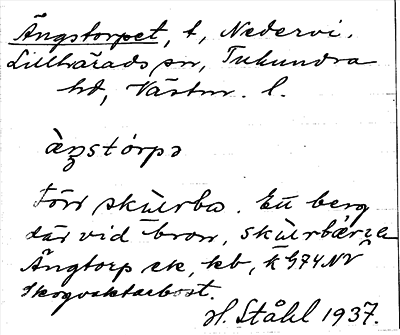 Ängstorpet, t, Nedervi.
Lillhärads sn, Tuhundra
hd, Västm. l.
àŋstórpə
Förr skùrba. Ett berg
där vid bron, skùrbärət
Ängtorp ek, kb, K G74NV
Skogvaktarbost.
H. Ståhl 1937.